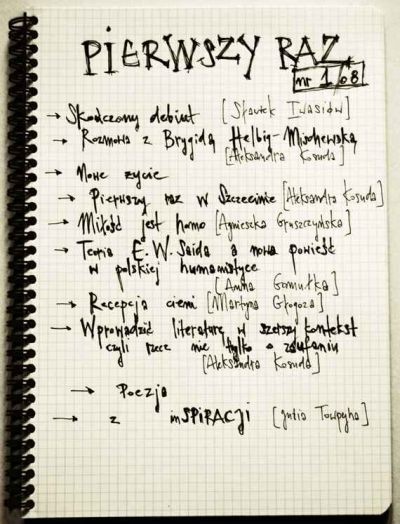 PIERWSZY RAZ
nr 1/08
→ Skończony debiut [Sławek Iwasiów]
→ Rozmowa z Brygidą Helbig-Mischewską
[Aleksandra Kosuda]
→ Nowe życie
→ Pierwszy raz w Szczecinie [Aleksandra Kosuda]
→ Miłość jest homo [Agnieszka Gruszczyńska]
→ Teoria E. W. Saida a nowa powieść
w polskiej humanistyce
[Anna Gomułka]
→ Recepcja cieni [Martyna Głogoza]
→ Wprowadzić literaturę w szerszy kontekst
czyli rzecz nie tylko o zaufaniu
[Aleksandra Kosuda]
→ Poezja
→ z inSPIRACJI [Julia Towpyha]